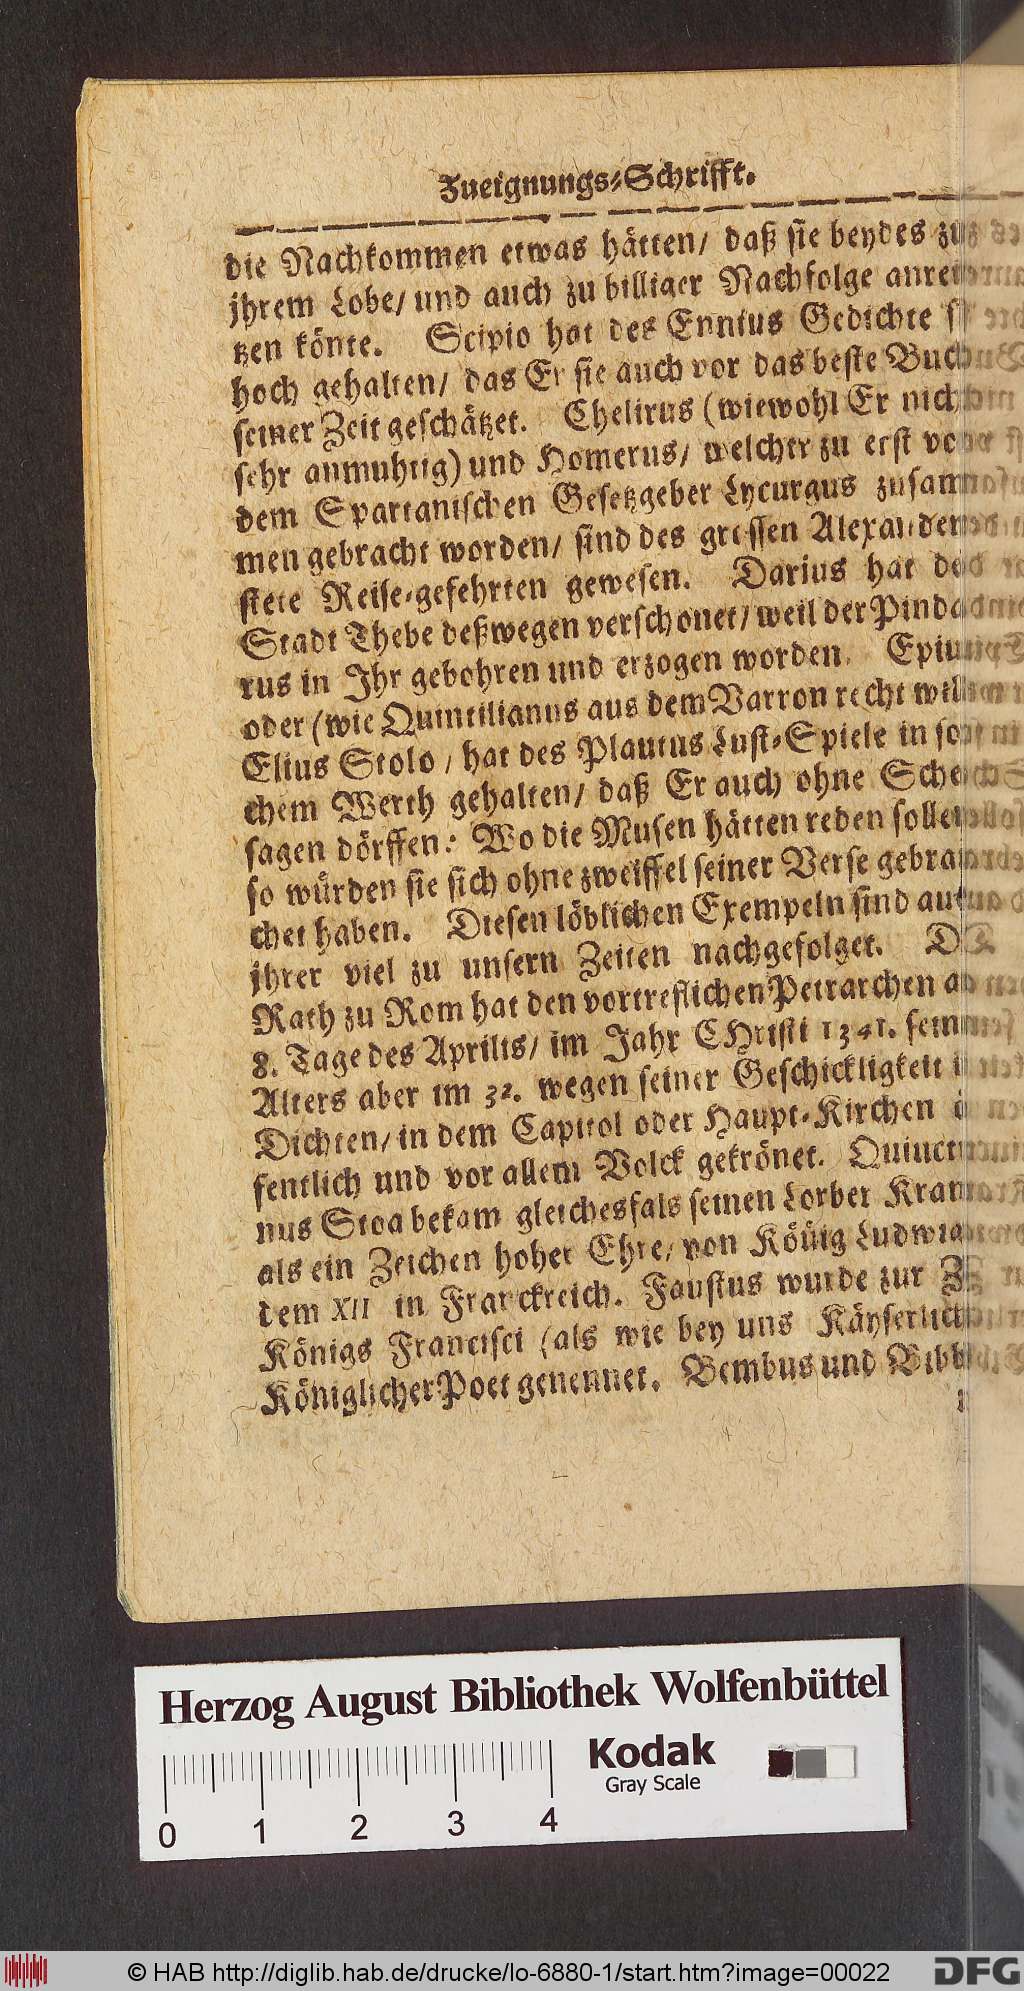 Zueignungs-Schrifft.
die Nachkommen etwas hätten/ daß sie beydes zu
jhrem Lobe/ und auch zu billiger Nachfolge anrei-
tzen könte. Scipio hat des Ennius Gedichte
hoch gehalten/ das Er sie auch vor das beste Buch
seiner Zeit geschätzet. Chelirus (wiewohl Er nicht
sehr anmuhtig) und Homerus/ welcher zu erst von
dem Spartanischen Gesetzgeber Lycurgus zusam-
men gebracht worden/ sind des grossen Alexanders
stete Reise-gefehrten gewesen. Darius hat der
Stadt Thebe deßwegen verschonet/ weil der Pinda-
rus in Ihr gebohren und erzogen worden. Epius
oder (wie Quintilianus aus dem Varron recht will
Elius Stolo, hat des Plautus Lust-Spiele in sol-
chem Werth gehalten/ daß Er auch ohne Scheu
sagen dörffen: Wo die Musen hätten reden sollen
so würden sie sich ohne zweiffel seiner Verse gebrau-
chet haben. Diesen löblichen Exempeln sind auch
jhrer viel zu unsern Zeiten nachgefolget. Der
Rath zu Rom hat den vortreflichen Petrarchen am
8. Tage des Aprilis/ im Jahr CHristi 1341. seines
Alters aber im 32. wegen seiner Geschickligkeit im
Dichten/ in dem Capitol oder Haupt-Kirchen öf-
fentlich und vor allem Volck gekrönet. Quinctia-
nus Stoa bekam gleichesfals seinen Lorber Krantz
als ein Zeichen hoher Ehre/ von Köuig Ludwig
dem XII in Franckreich. Faustus wurde zur Zeit
Königs Francisci (als wie bey uns Käyserlich
Königlicher Poet genennet. Bembus und Bibb
Herzog August Bibliothek Wolfenbüttel
Kodak
Gray Scale
0 1 2 3 4
© HAB http://diglib.hab.de/drucke/lo-6880-1/start.htm?image=00022
DFG